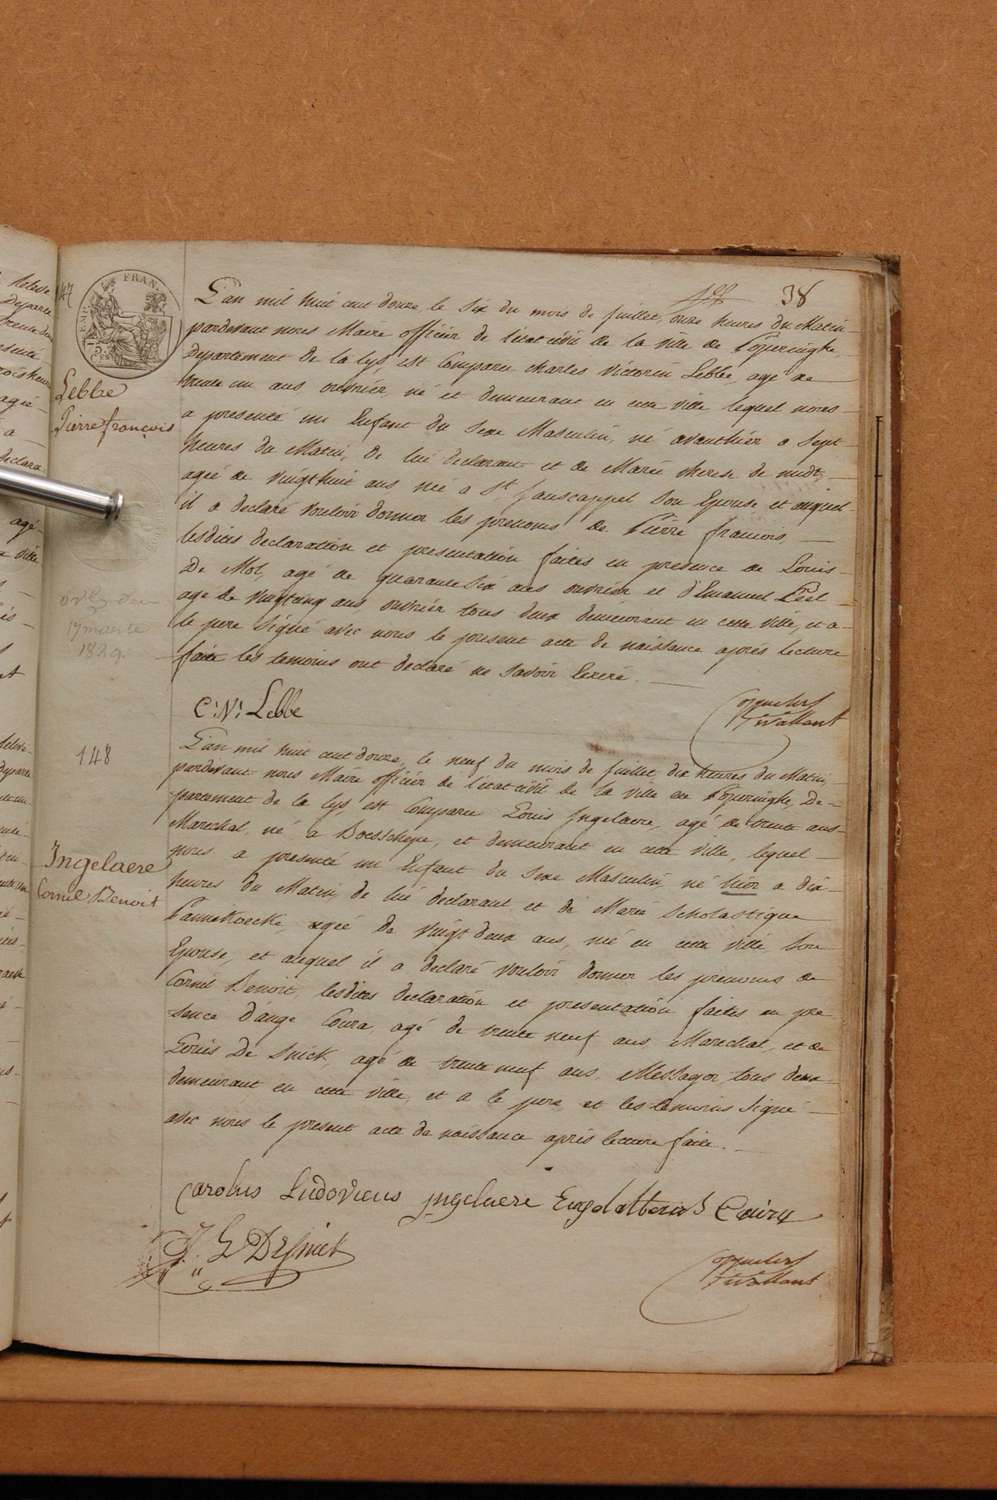 38
147
FRAN
Lebbe
Pierre françois
L'an mil huit cent douze, le six du mois de juillet, onze heures du Matin
pardevant nous Maire officier de l'état civil de la ville de Poperinghe
Departement de la lys, est Comparu charles Victorin Lebbe, agé de
trente un ans, ouvrier, né et demeurant en cette ville lequel nous
a presenté un Enfant du Sexe Masculin, né avanthier a Sept
heures du Matin, de lui declarant et de Marie therese de
agée de vingthuit ans née a St. Janscappel Son Epouse et auquel
il a declaré vouloir donner les prenoms de Pierre francois
lesdites declaration et presentation faites en presence de Louis
De Mol, agé de quarante six ans ouvrier et d'Emanuel
age de vingtcinq ans ouvrier tous deux demeurant en cette ville, et a
le pere Signé avec nous le present acte de naissance après lecture
faite les temoins ont declaré ne Savoir Ecrire.
17 maerte
1829.
C. V. Lebbe
148
Ingelaere
Cornil Benoit
L'an mil huit cent douze, le neuf du mois de juillet, dix heures du Matin,
pardevant nous Maire officier de l'état civil de la ville de Poperinghe, De-
partement de la lys, est Comparu Louis Ingelaere, agé de trente ans
Marechal, né a Boesschepe, et demeurant en cette ville, lequel
nous a presenté un Enfant du Sexe Masculin, né hier a dix
heures du Matin, de lui declarant et de Marie Scholastique
Pannekoecke, agée de vingt deux ans, née en cette ville Son
Epouse, et auquel il a declaré vouloir donner les prenoms de
Cornil Benoit, lesdites declaration et presentation faites en pre
sence d'ange Coura, agé de trente neuf ans, Marechal, et de
Louis De Snick, agé de trente neuf ans, Messager, tous deux
demeurant en cette ville, et a le pere et les temoins Signé
avec nous le present acte de naissance après lecture faite.
Carolus Ludovicus Ingelaere
L DeSnick